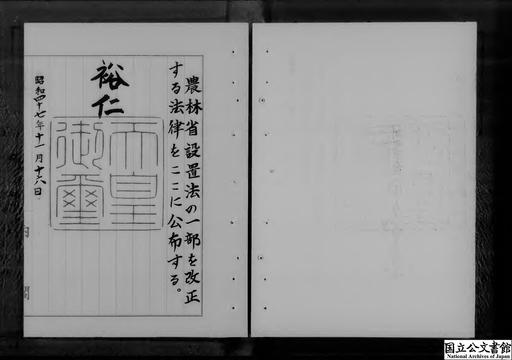 農林省設置法の一部を改正
する法律をここに公布する。
裕仁
天皇
御璽
昭和四十七年十一月十六日
国立公文書館
National Archives of Japan